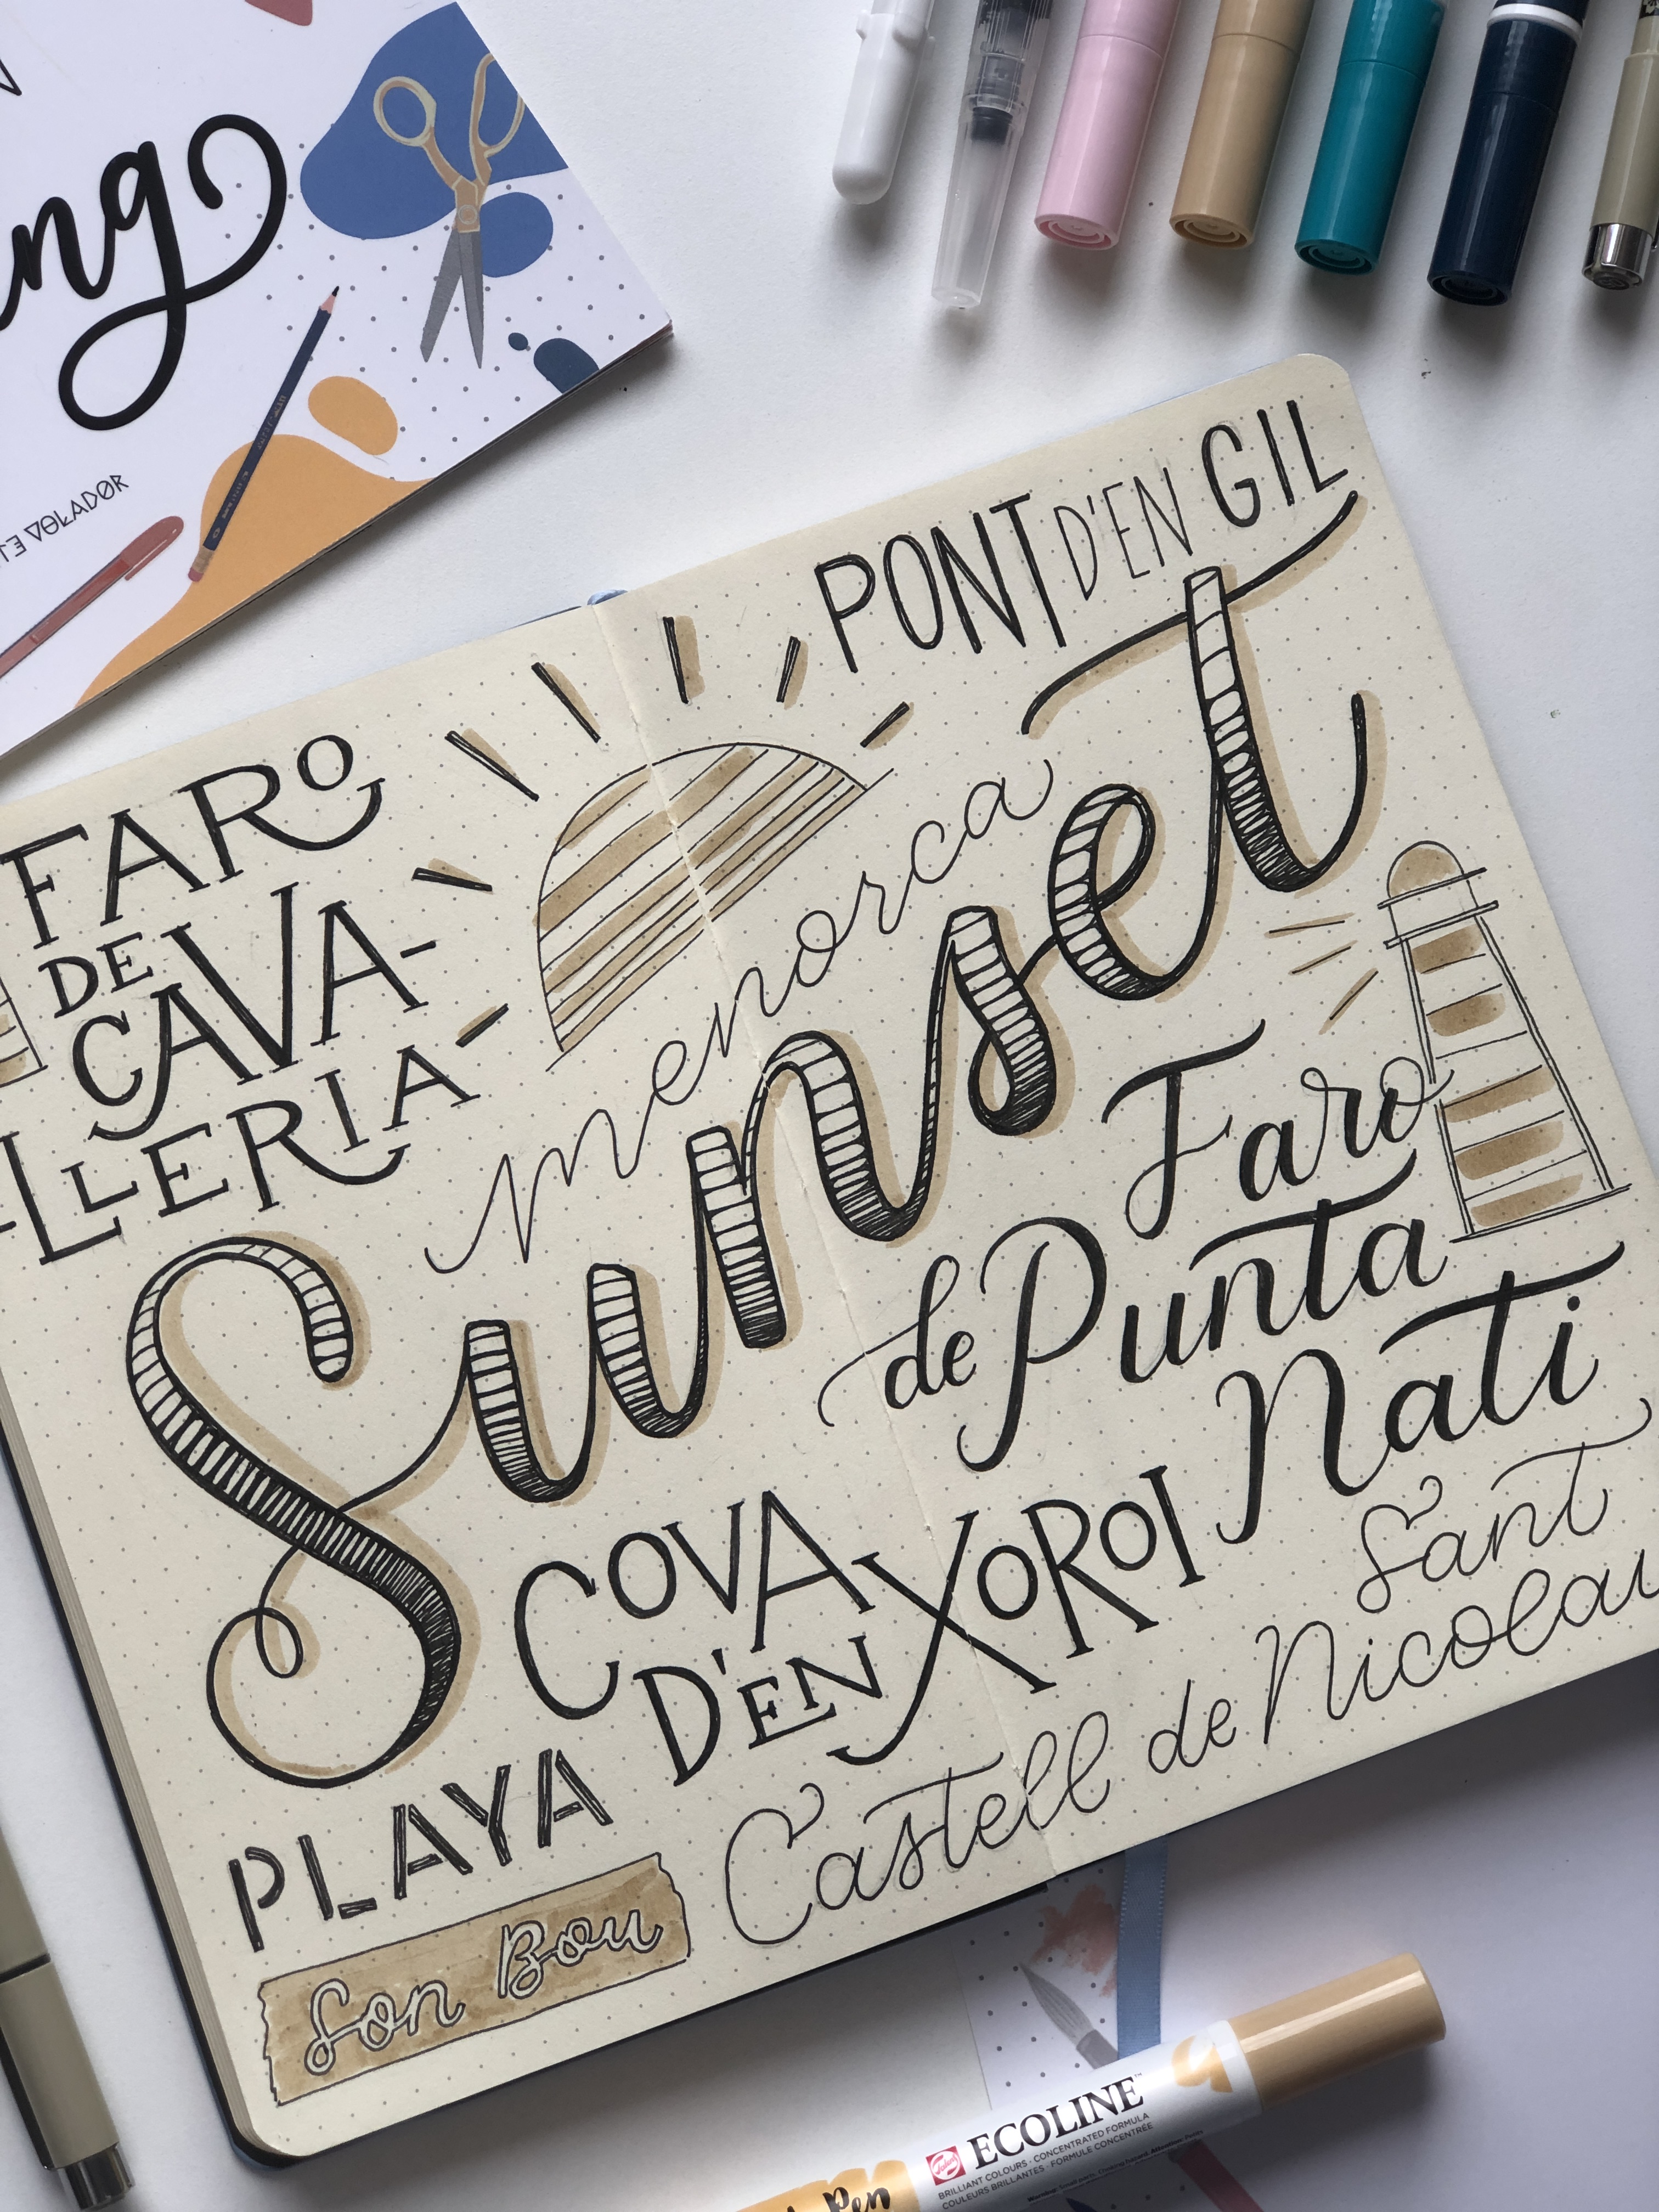 VOLADOR
PONT D'EN GIL
FARO
DE
CAVA-
LLERIA
menorca
Sunset
Faro
de Punta
Nati
COVA
D'EN XOROI
Sant
Castell de Nicolau
PLAYA
Son Bou
ECOLINE
BRILLIANT COLOURS · CONCENTRATED FORMULA
COULEURS BRILLANTES · FORMULE CONCENTRÉE
Pen